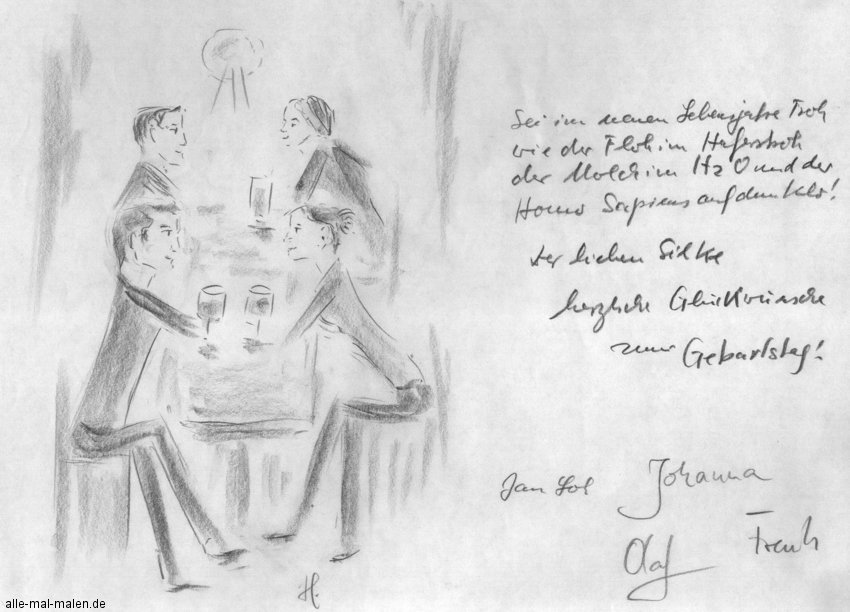 Sei im neuen Lebensjahre Froh
wie der Floh im Haferstroh
der Molch im H2O und der
Homo Sapiens auf dem Klo!
der lieben Silke
herzliche Glückwünsche
zum Geburtstag!
Jan
Johanna
Olaf
H.
alle-mal-malen.de